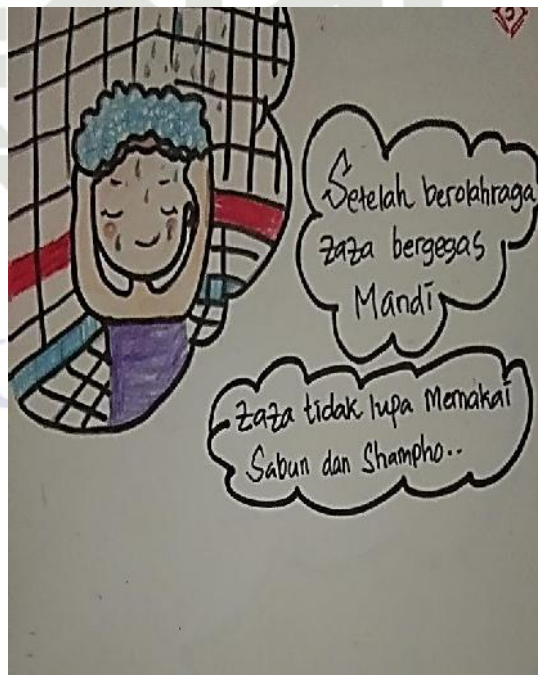 Setelah berolahraga
zaza bergegas
Mandi
zaza tidak lupa Memakai
Sabun dan Shampho..